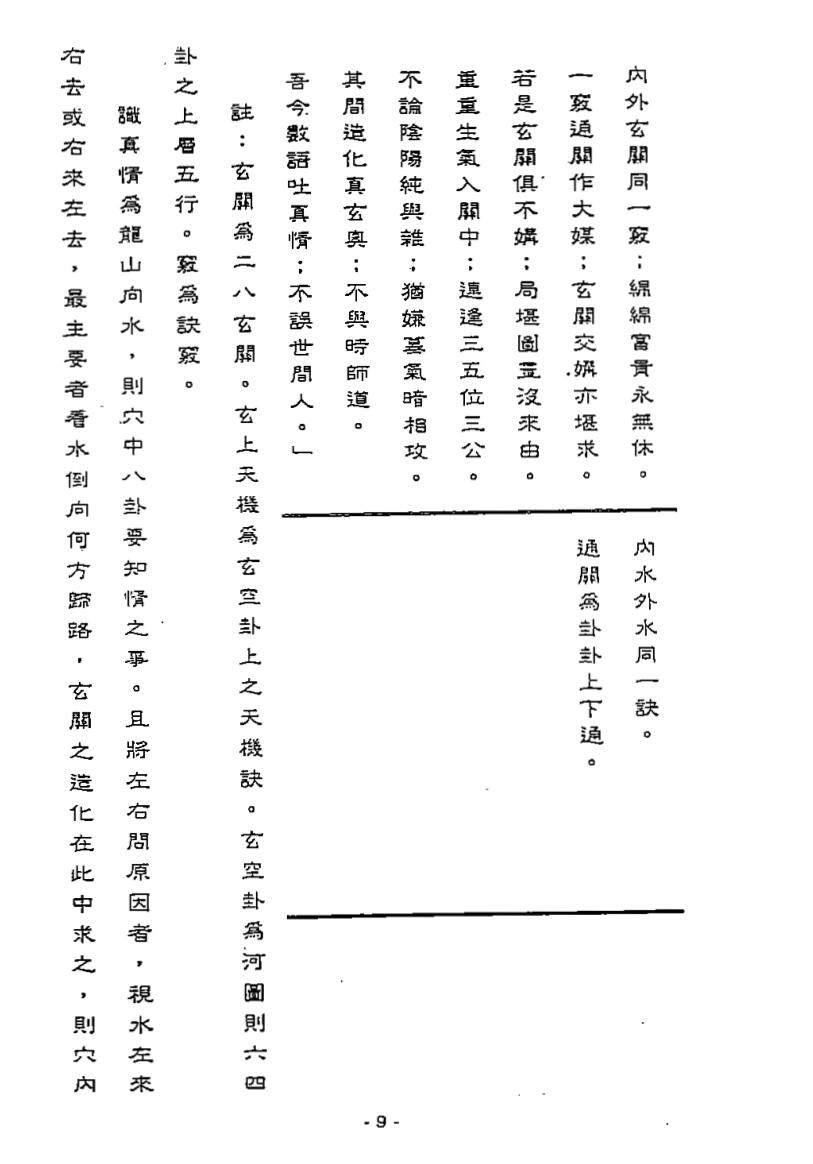 內外玄關同一竅；綿綿富貴永無休。
內水外水同一訣。
一竅通關作大媒；玄關交媾亦堪求。
通關為卦卦上下通。
若是玄關俱不媾；局堪圖畫沒來由。
重重生氣入關中；連逢三五位三公。
不論陰陽純與雜；猶嫌墓氣暗相攻。
其間造化真玄奧；不與時師道。
吾今數語吐真情；不誤世間人。」
註：玄關為二八玄關。玄上天機為玄空卦上之天機訣。玄空卦為河圖則六四
卦之上層五行。竅為訣竅。
識真情為龍山向水，則穴中八卦要知情之事。且將左右問原因者，視水左來
右去或右來左去，最主要者看水倒向何方歸路，玄關之造化在此中求之，則穴內
- 9 -